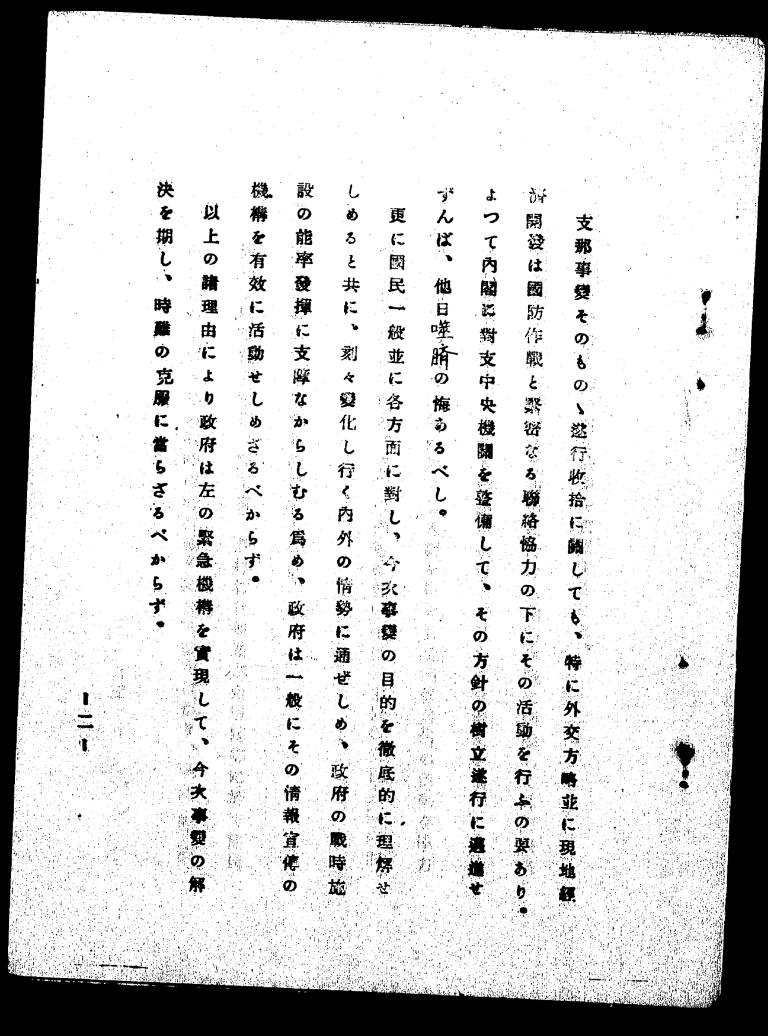 支那事變そのものゝ遂行收拾に關しても、特に外交方略並に現地經
濟開發は國防作戰と緊密なる聯絡協力の下にその活動を行ふの要あり。
よつて內閣に對支中央機關を整備して、その方針の樹立遂行に邁進せ
ずんば、他日噬臍の悔あるべし。
更に國民一般並に各方面に對し、今次事變の目的を徹底的に理解せ
しめると共に、刻々變化し行く內外の情勢に通ぜしめ、政府の戰時施
設の能率發揮に支障なからしむる爲め、政府は一般にその情報宣傳の
機構を有效に活動せしめざるべからず。
以上の諸理由により政府は左の緊急機構を實現して、今次事變の解
決を期し、時難の克服に當らざるべからず。
―二―